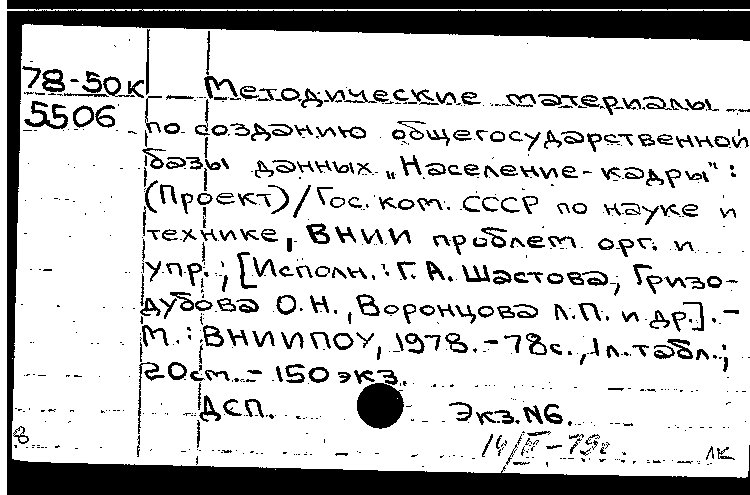 78-50к Методические материалы
5506 по созданию общегосударственной
базы данных „Население-кадры":
(Проект)/Гос. ком. СССР по науке и
технике, ВНИИ проблем орг. и
упр.; [Исполн.: Г. А. Шастова, Гризо-
дубова О.Н., Воронцова Л.П. и др.]. -
М.: ВНИИПОУ, 1978. - 78с., 1л.табл.;
20см. - 150 экз.
ДСП. Экз. N6.
8 14/III-79г. ЛК